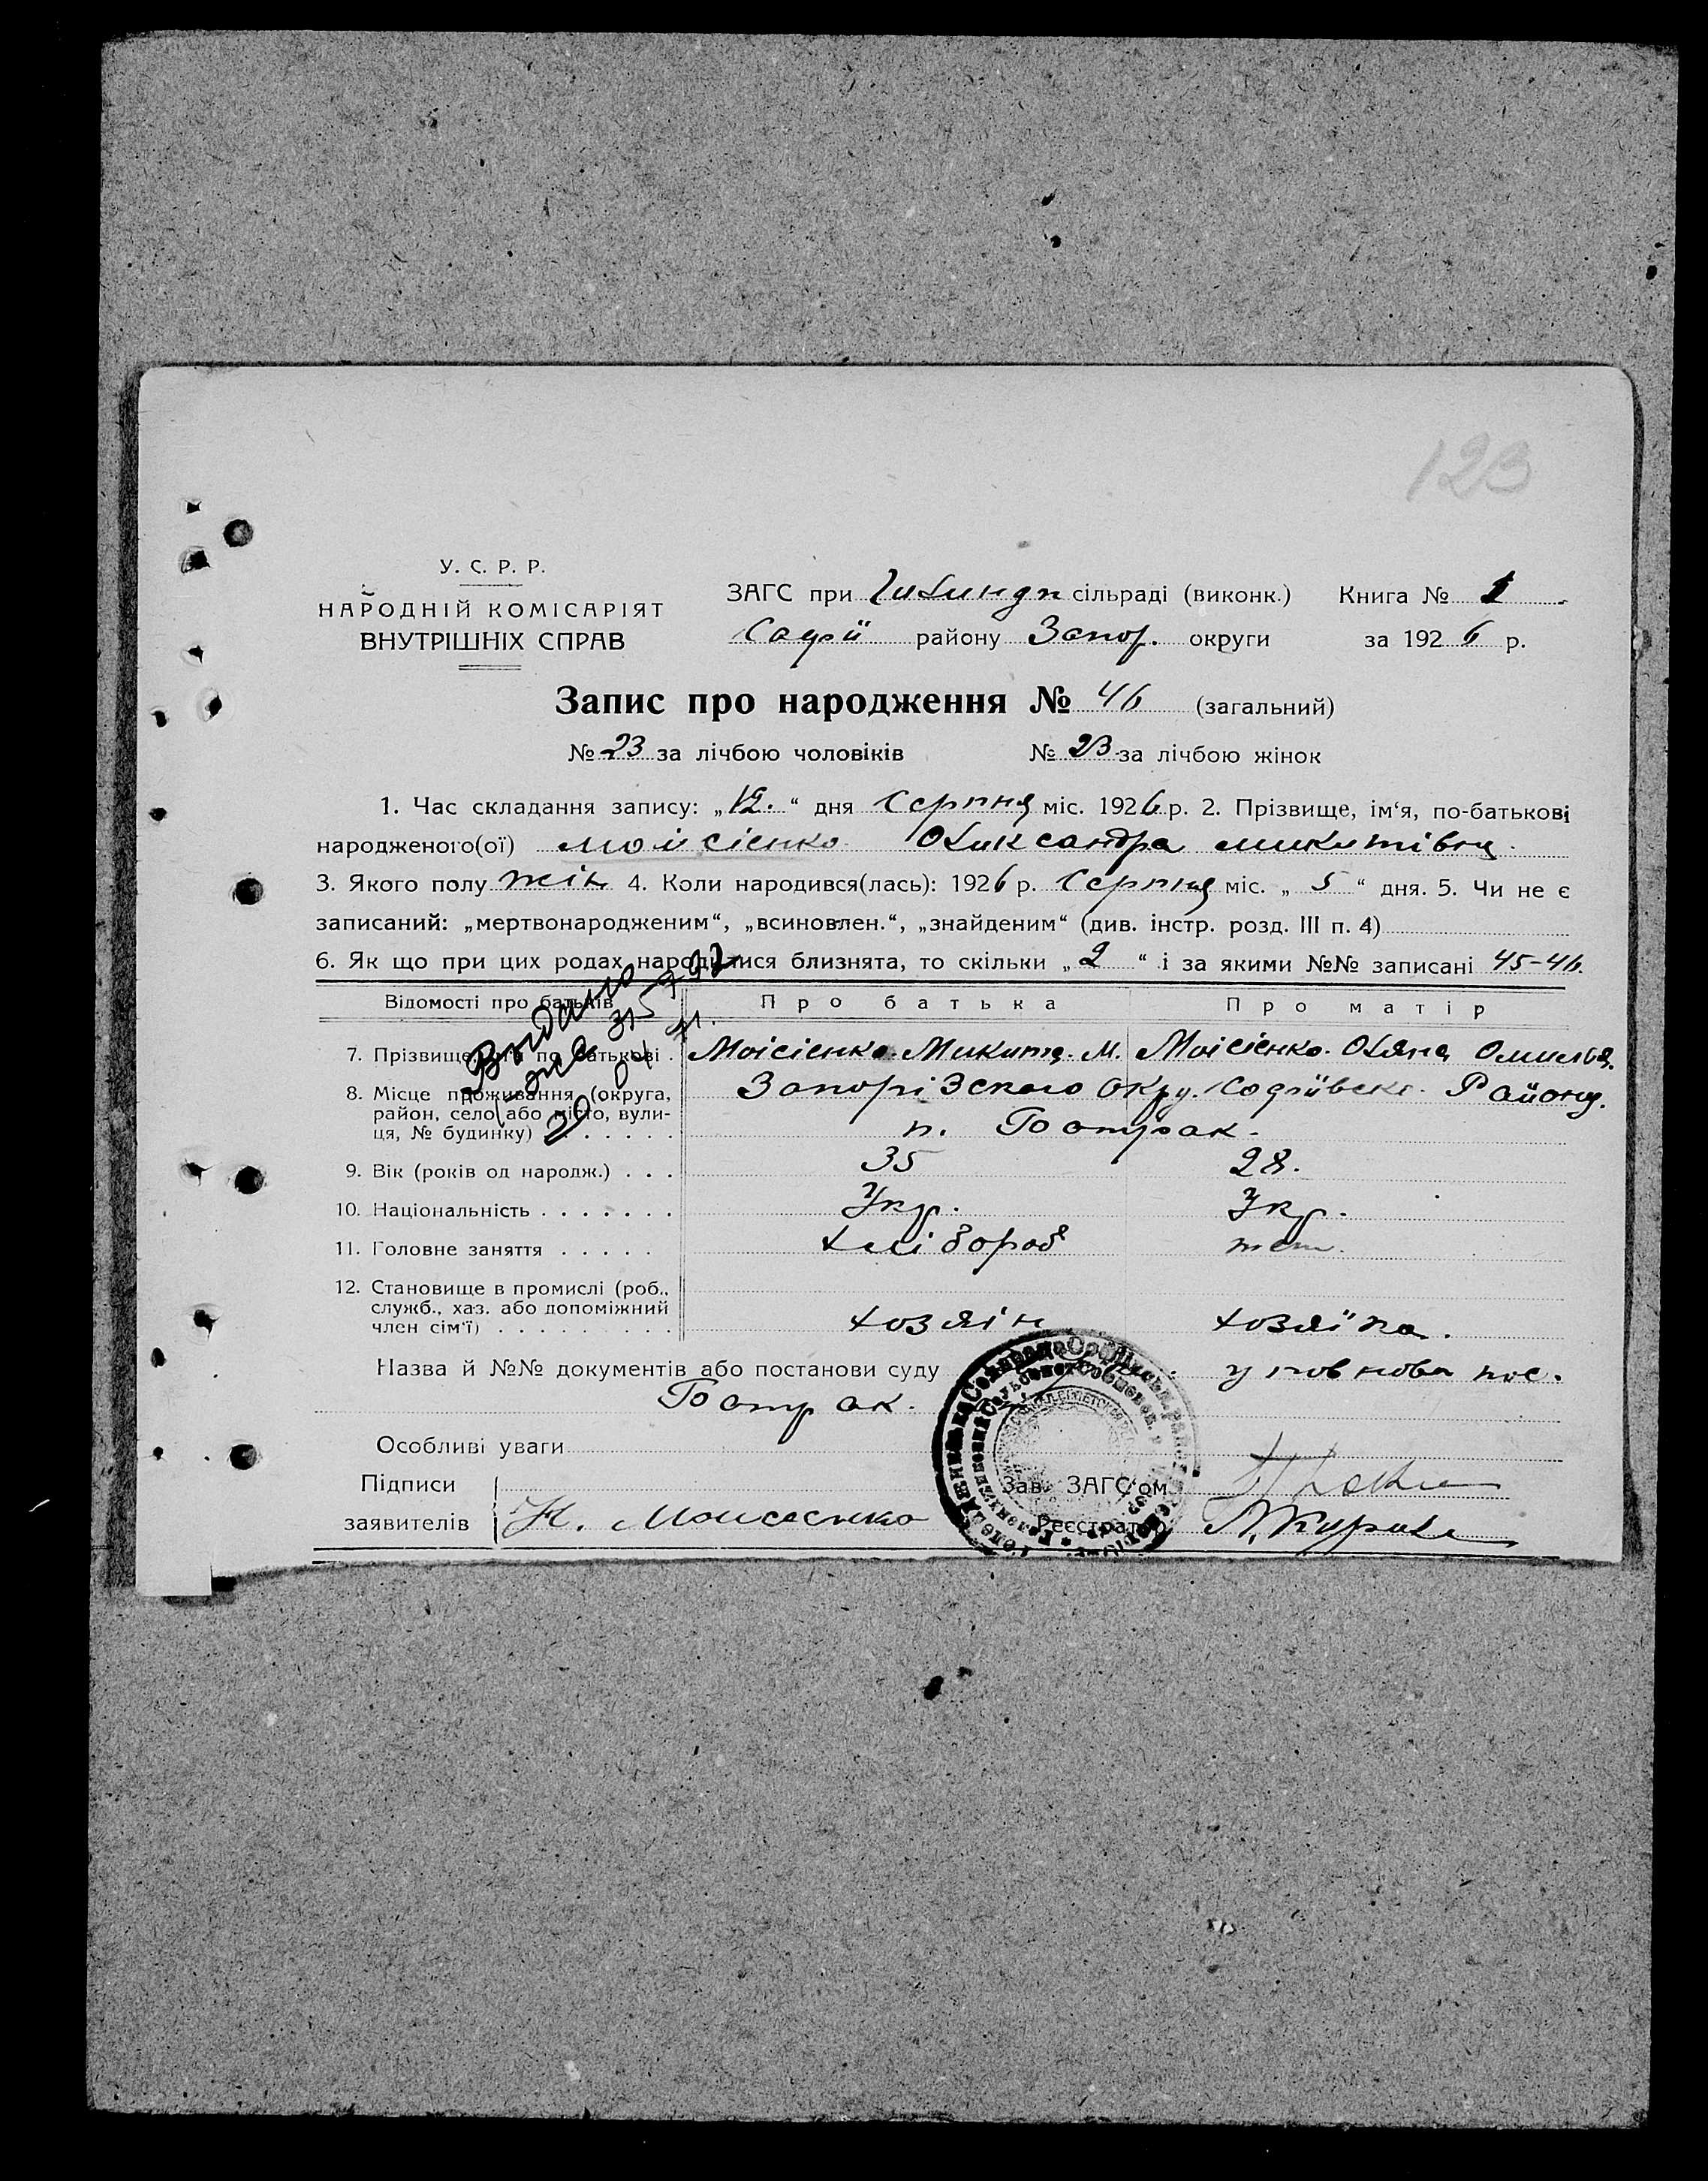 123
У. С. Р. Р.
НАРОДНІЙ КОМІСАРІЯТ
ВНУТРІШНІХ СПРАВ
ЗАГС при сільраді (виконк.) Книга № 1
Софії району Запор. округи за 1926 р.
Запис про народження № 46 (загальний)
№ 23 за лічбою чоловіків № 23 за лічбою жінок
1. Час складання запису: „12.“ дня Серпня міс. 1926 р. 2. Прізвище, ім‘я, по-батькові
народженого(ої) Моісієнко Олександра Микитівна
3. Якого полу жін 4. Коли народився(лась): 1926 р. Серпня міс. „ 5 “ дня. 5. Чи не є
записаний: „мертвонародженим“, „всиновлен.“, „знайденим“ (див. інстр. розд. III п. 4)
6. Як що при цих родах народилися близнята, то скільки „ 2 “ і за якими №№ записані 45-46.
Відомості про батьків Про батька Про матір
7. Прізвище, ім‘я по батькові . Моісієнко. Микита. М. Моісієнко. Оляна
8. Місце проживання (округа, район, село або місто, вулиця, № будинку) Запорізского Окру. Софіївск. Району.
п.
9. Вік (років од народж.) . . . 35 28.
10. Національність . . . . . . . Укр. Укр.
11. Головне заняття . . . . . Хлібороб теж.
12. Становище в промислі (роб., служб., хаз. або допоміжний член сім‘ї) . . . . . . . . . хозяїн хозяїка.
Назва й №№ документів або постанови суду пос.
Особливі уваги
Підписи
заявителів Н. Моисеенко
Зав. ЗАГС‘ом
Реєстратор
Выдано